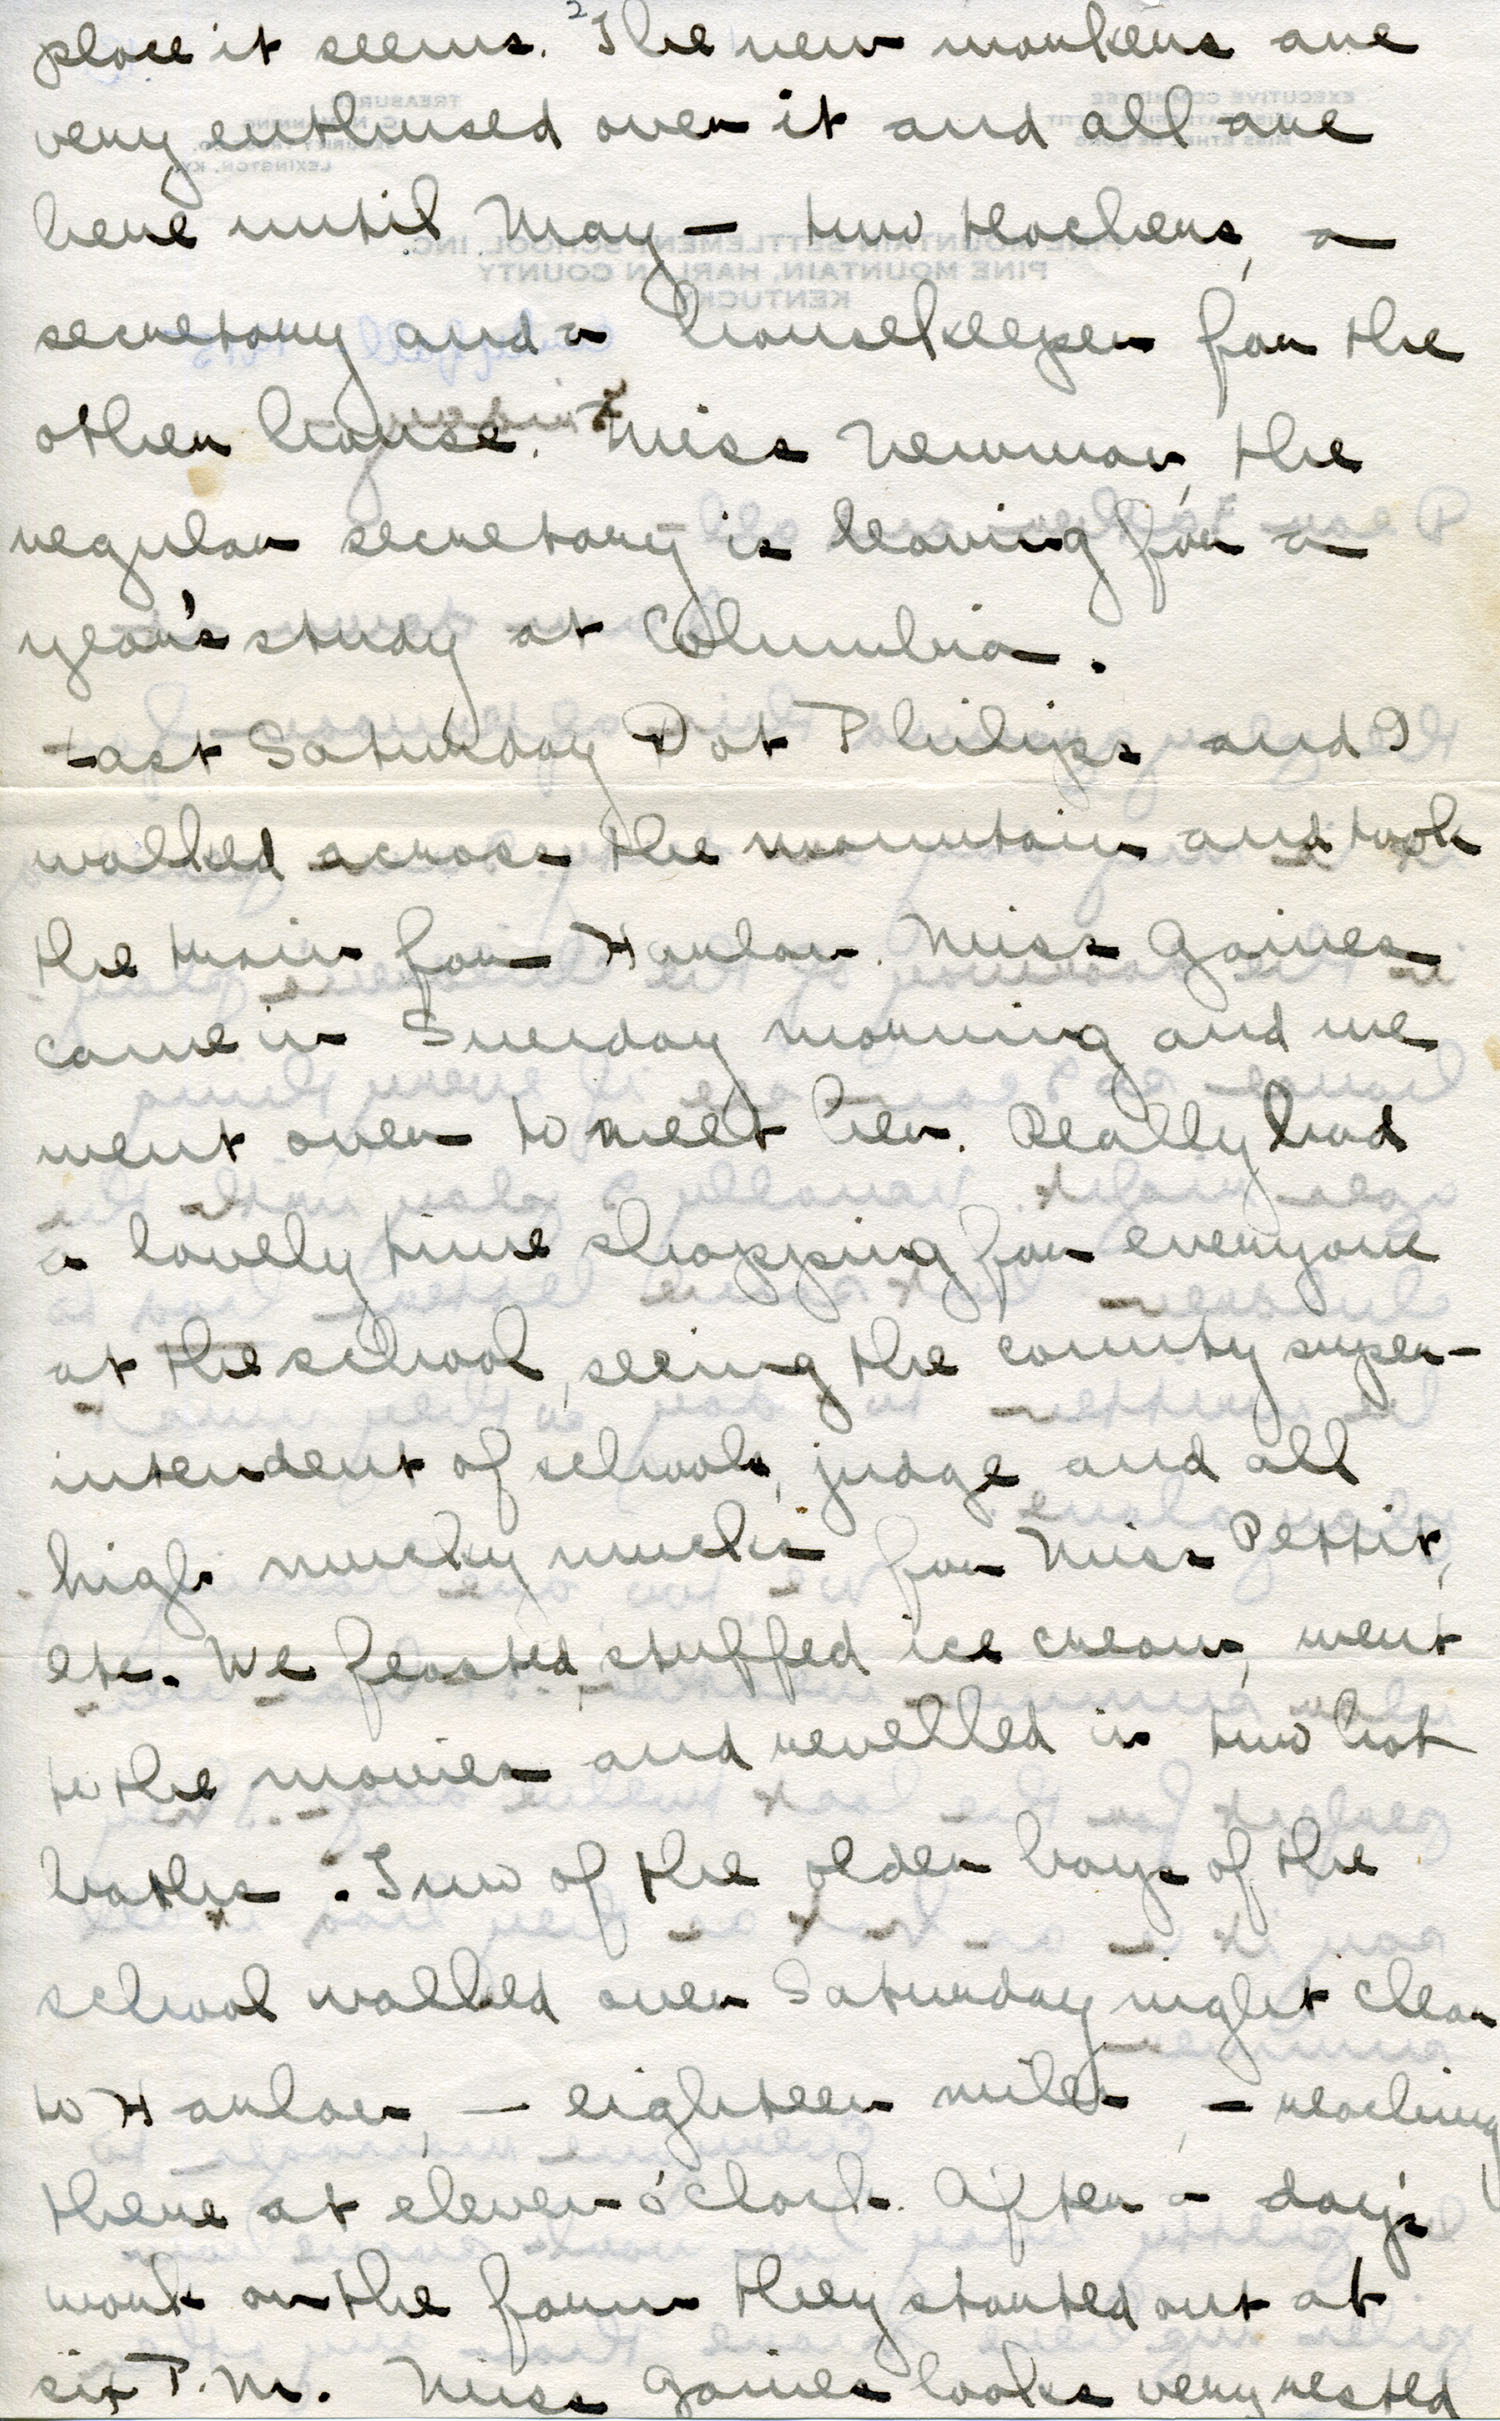 2
place it seems. The new workers are
very enthused over it and all are
here until May — two teachers, a
secretary and a housekeeper for the
other house. Miss Newman, the
regular secretary is leaving for a
year's study at Columbia.
Last Saturday Dot Philips and I
walked across the mountain and took
the train for Harlan. Miss Gaines
came in Sunday morning and we
went over to meet her. Really had
a lovely time shopping for everyone
at the school, seeing the county super-
intendent of schools, judge and all
high mucky mucks for Miss Pettit,
etc. We feasted, stuffed ice cream, went
to the movies and revelled in two hot
baths. Two of the older boys of the
school walked over Saturday night clear
to Harlan, — eighteen miles, — reaching
there at eleven o'clock. After a day's
work on the farm they started out at
six P.M. Miss Gaines looks very rested